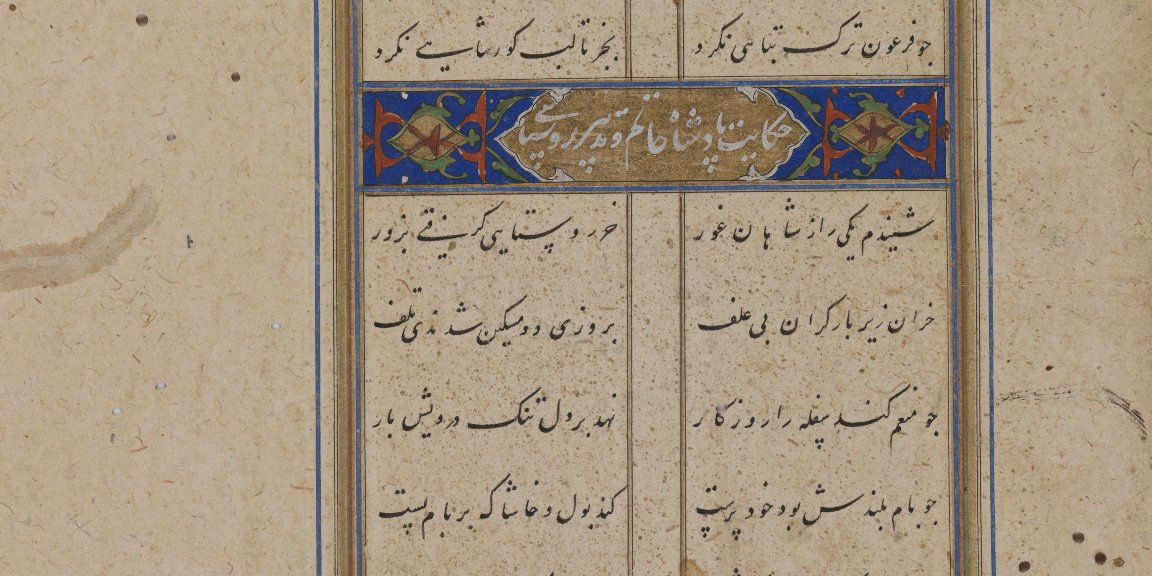 چو فرعون ترک تباهی نکرد بجز تا لب گور شاهی نکرد
حکایت پادشاه ظالم و تدبیر روستایی
شنیدم یکی را ز شاهان غور خر روستایی گرفتی بزور
خران زیر بار کران بی علف بروزی دو مسکین شدندی تلف
چو منعم کند سفله را روزکار نهد بر دل تنک درویش بار
چو بام بلندش بود خود پرست کند بول و خاشاک بر بام پست